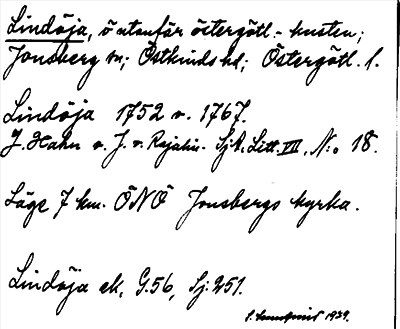 Lindöja, ö utanför östergötl.-kusten;
Jonsberg sn; Östkinds hd; Östergötl. l.
Lindöja 1752 o. 1767.
J. Hahn o. J. v. Rajalin. Sj.k. Litt. VII, N:o 18.
Läge 7 km. ÖNÖ Jonsbergs kyrka.
Lindöja ek, G.56, Sj:251.
1939.